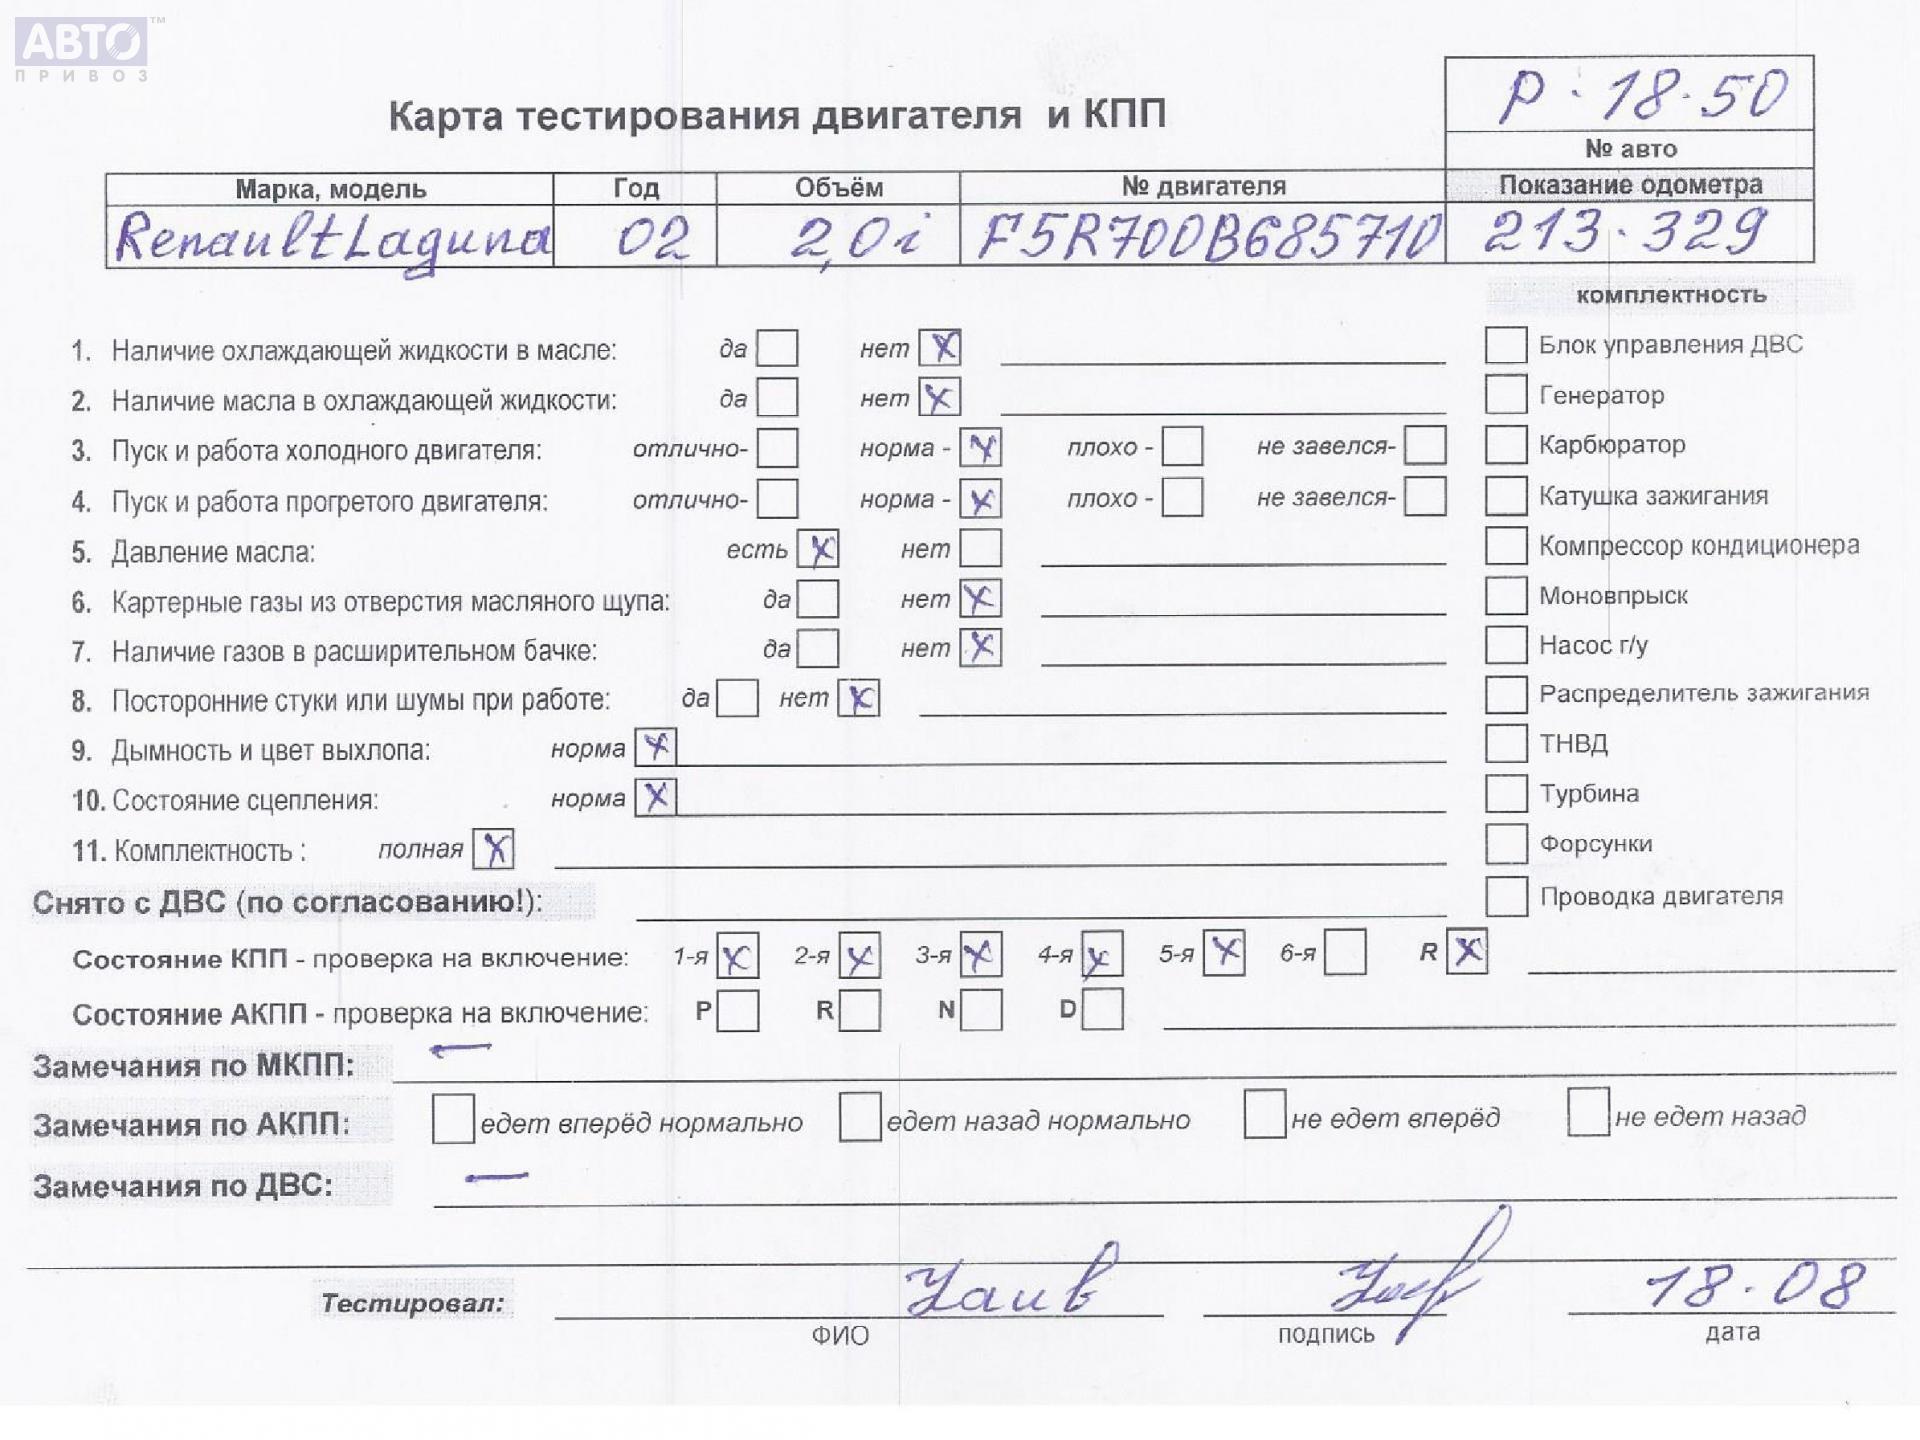 АВТО™
ПРИВОЗ
Р·18·50
Карта тестирования двигателя и КПП
№ авто
Марка, модель Год Объём № двигателя Показание одометра
Renault Laguna 02 2,0i F5R700B685710 213·329
комплектность
1. Наличие охлаждающей жидкости в масле: да нет X
Блок управления ДВС
2. Наличие масла в охлаждающей жидкости: да нет X
Генератор
3. Пуск и работа холодного двигателя: отлично- норма - X плохо - не завелся-
Карбюратор
4. Пуск и работа прогретого двигателя: отлично- норма - X плохо - не завелся-
Катушка зажигания
5. Давление масла: есть X нет
Компрессор кондиционера
6. Картерные газы из отверстия масляного щупа: да нет X
Моновпрыск
7. Наличие газов в расширительном бачке: да нет X
Насос г/у
8. Посторонние стуки или шумы при работе: да нет X
Распределитель зажигания
9. Дымность и цвет выхлопа: норма X
ТНВД
10. Состояние сцепления: норма X
Турбина
11. Комплектность : полная X
Форсунки
Снято с ДВС (по согласованию!):
Проводка двигателя
Состояние КПП - проверка на включение: 1-я X 2-я X 3-я X 4-я X 5-я X 6-я R X
Состояние АКПП - проверка на включение: P R N D
Замечания по МКПП: —
Замечания по АКПП: едет вперёд нормально едет назад нормально не едет вперёд не едет назад
Замечания по ДВС: —
Тестировал: 18·08
ФИО подпись дата